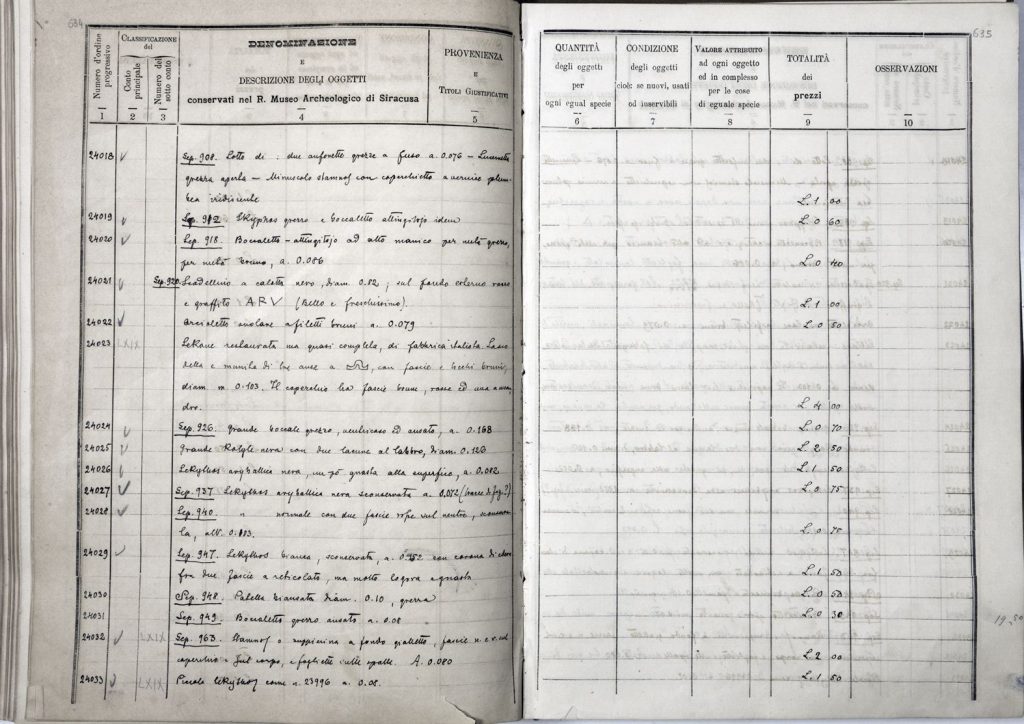 634
Numero d'ordine progressivo
CLASSIFICAZIONE del
Conto principale
Numero del sotto conto
DENOMINAZIONE
E
DESCRIZIONE DEGLI OGGETTI
conservati nel R. Museo Archeologico di Siracusa
PROVENIENZA
E
TITOLI GIUSTIFICATIVI
1 2 3 4 5
24018 Sep. 908. Lotto di: due anforette grezze a fuso a. 0.076 – Lucernetta
grezza aperta – Minuscolo stamnos con coperchietto a vernice plum-
bea iridiscente
24019 Sep. 912 Skyphos grezzo e boccaletto attingitojo idem
24020 Sep. 918. Boccaletto – attingitojo ad alto manico per metà grezzo,
per metà bruno, a. 0.086
24021 Sep. 920. Scodellino a calotta nero, diam. 0.82; sul fondo esterno rosso
e graffito ARV (Bello e freschissimo).
24022 Orcioletto a filetti bruni a. 0.079
24023 LXIX Lekane restaurata ma quasi completa, di fabbrica italiota.
della e munita di tre anse a con fascie e bruni,
diam. m. 0.103. Il coperchio ha fascie brune, rosse ed una a
dro.
24024 Sep. 926. Grande boccale grezzo, ventricoso ed ansato, a. 0.168
24025 Grande Kotyle nera con due lacune al labbro, diam. 0.123
24026 Lekythos aryballica nera, un pò guasta alla superficie, a. 0.082
24027 Sep. 937. Lekythos aryballica nera sconservata a. 0.072 (tracce di fig.?)
24028 Sep. 940. " normale con due fascie rosse sul ventre, sconserva-
ta, alt. 0.113.
24029 Sep. 947. Lekythos bianca, sconservata, a. con corona di edera
fra due fascie a reticolato, ma molto logora e guasta.
24030 Sep. 948. Patella biansata diam. 0.10, grezza
24031 Sep. 949. Boccaletto grezzo ansato a. 0.08
24032 LXIX Sep. 963. Stamnos o zuppierina a fondo gialletto, fascie n. e r. sul
coperchio e sul corpo, e fogliette sulle spalle. A. 0.080
24033 LXIX Piccola lekythos come n. 23996 a. 0.08.
635
QUANTITÀ
degli oggetti
per
ogni egual specie
CONDIZIONE
degli oggetti
cioè: se nuovi, usati
od inservibili
VALORE ATTRIBUITO
ad ogni oggetto
ed in complesso
per le cose
di eguale specie
TOTALITÀ
dei
prezzi
OSSERVAZIONI
6 7 8 9 10
L. 1 00
L. 0 60
L. 0 40
L. 1 00
L. 0 50
L. 4 00
L. 0 70
L. 2 50
L. 1 50
L. 0 75
L. 0 75
L. 1 50
L. 0 50
L. 0 30
19,50
L. 2 00
L. 1 50